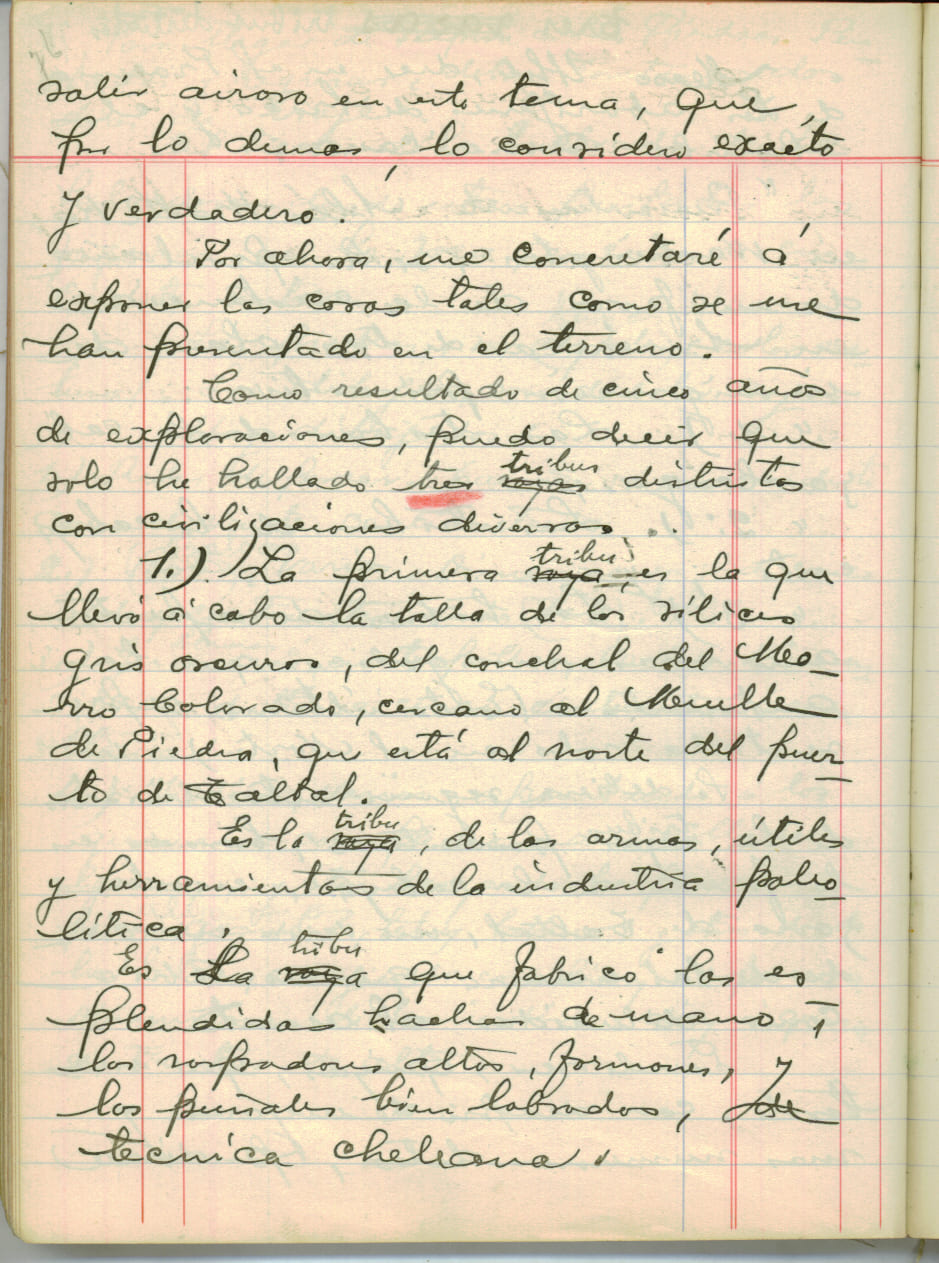 salir airoso en este tema, que,
por lo demas, lo considero exacto
y verdadero.
Por ahora, me concretaré á
exponer las cosas tales como se me
han presentado en el terreno.
Como resultado de cinco años
de exploraciones, puedo decir que
solo he hallado tres razas tribus distintas
con civilizaciones diversas.
1.) La primera raza tribu, es la que
llevó á cabo la talla de los sílices
gris oscuros, del conchal del Mo-
rro Colorado, cercano al Muelle
de Piedra, que está al norte del puer-
to de Taltal.
Es la raza tribu, de las armas, útiles
y herramientas de la industria paleo-
lítica.
Es La raza tribu que fabricó las es-
plendidas hachas de mano,
los raspadores altos, formones, y
los puñales bien labrados, de
tecnica cheleana.